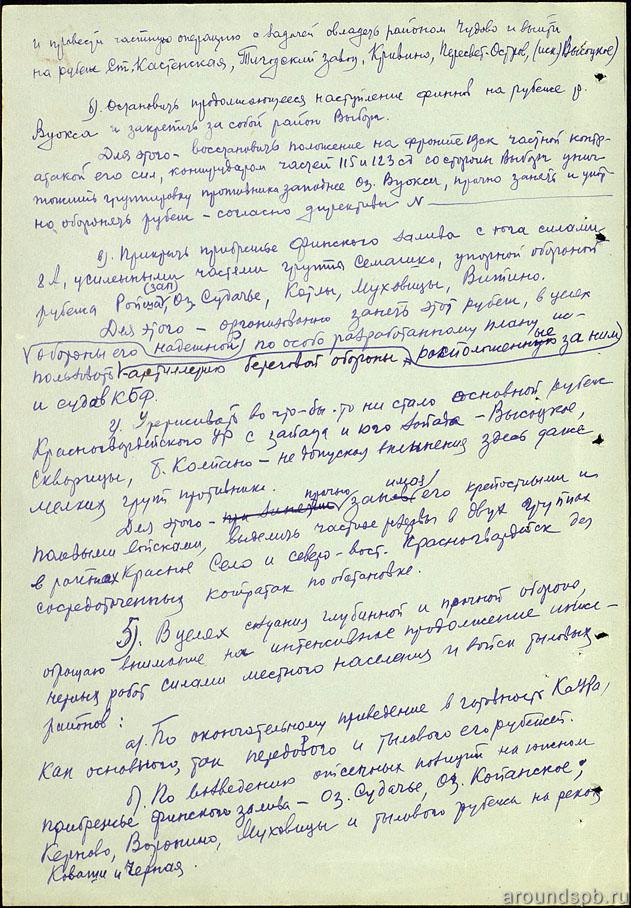 и провести частную операцию с задачей овладеть районом Чудово и выйти
на рубеж ст. Кастенская, Тигодский завод, Кривино, Пересвет-Остров, (иск) Высоцкое)
б). Остановить продолжающееся наступление финнов на рубеже р.
Вуокса и закрепить за собой район Выборг.
Для этого - восстановить положение на фронте 19 ск частной контр-
атакой его сил, контрударом частей 115 и 123 сд со стороны Выборг унич-
тожить группировку противника западнее оз. Вуокси, прочно занять и
на оборонять рубеж - согласно директивы N
в). Прикрыть прибрежье Финского залива с юга силами
8 А, усиленными частями группы Семашко, упорной обороной
рубежа (зап) Оз. Судачье, Котлы, Муховицы, Витино.
Для этого - организованно занять этот рубеж, в целях
обороны его надежной по особо разработанному плану ис-
пользовать артиллерию береговой обороны расположенные за ним
и судов КБФ.
г). Удерживать во что-бы-то ни стало основной рубеж
Красногвардейского УР с запада и юго запада - Высоцкое,
Скворицы, Б. Колпано - не допуская вклинения здесь даже
мелких групп противника.
Для этого - прочно занять его крепостными и
полевыми войсками, выделить частные резервы в двух группах
в районах Красное Село и северо-вост. Красногвардейск для
сосредоточенных контратак по обстановке.
5). В целях создания глубинной и прочной обороны,
обращаю внимание на интенсивное продолжение инже-
нерных работ силами местного населения и войск тыловых
районов:
а). По окончательному приведение в готовность КаУРа,
как основного, так передового и тылового его рубежей.
б). По возведению отсечных позиций на южном
прибрежье финского залива - Оз. Судачье, Оз. Копанское;
Керново, Воронино, Муховицы и тылового рубежа на реках
Коваши и Черная.
aroundspb.ru